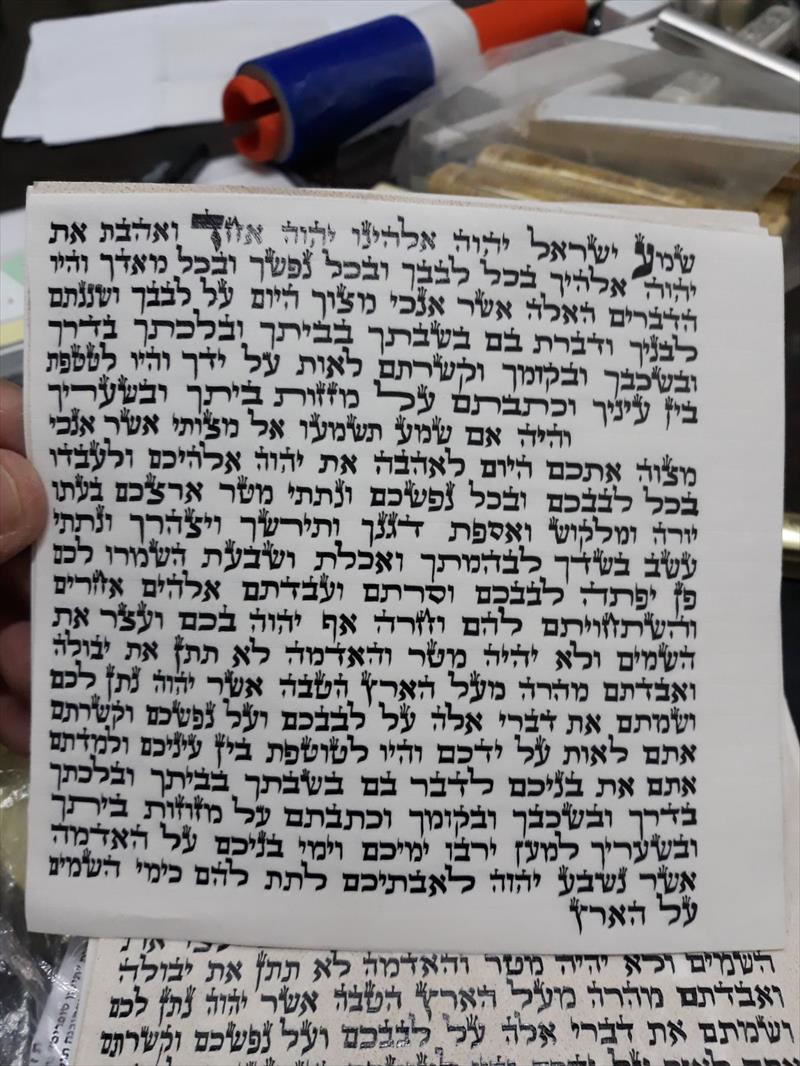 שמע ישראל יהוה אלהינו יהוה אחד ואהבת את
יהוה אלהיך בכל לבבך ובכל נפשך ובכל מאדך והיו
הדברים האלה אשר אנכי מצוך היום על לבבך ושננתם
לבניך ודברת בם בשבתך בביתך ובלכתך בדרך
ובשכבך ובקומך וקשרתם לאות על ידך והיו לטטפת
בין עיניך וכתבתם על מזזות ביתך ובשעריך
והיה אם שמע תשמעו אל מצותי אשר אנכי
מצוה אתכם היום לאהבה את יהוה אלהיכם ולעבדו
בכל לבבכם ובכל נפשכם ונתתי מטר ארצכם בעתו
יורה ומלקוש ואספת דגנך ותירשך ויצהרך ונתתי
עשב בשדך לבהמתך ואכלת ושבעת השמרו לכם
פן יפתה לבבכם וסרתם ועבדתם אלהים אחרים
והשתחויתם להם וחרה אף יהוה בכם ועצר את
השמים ולא יהיה מטר והאדמה לא תתן את יבולה
ואבדתם מהרה מעל הארץ הטבה אשר יהוה נתן לכם
ושמתם את דברי אלה על לבבכם ועל נפשכם וקשרתם
אתם לאות על ידכם והיו לטוטפת בין עיניכם ולמדתם
אתם את בניכם לדבר בם בשבתך בביתך ובלכתך
בדרך ובשכבך ובקומך וכתבתם על מזוזות ביתך
ובשעריך למען ירבו ימיכם וימי בניכם על האדמה
אשר נשבע יהוה לאבתיכם לתת להם כימי השמים
על הארץ
השמים ולא יהיה מטר והאדמה לא תתן את יבולה
ואבדתם מהרה מעל הארץ הטבה אשר יהוה נתן לכם
ושמתם את דברי אלה על לבבכם ועל נפשכם וקשרתם